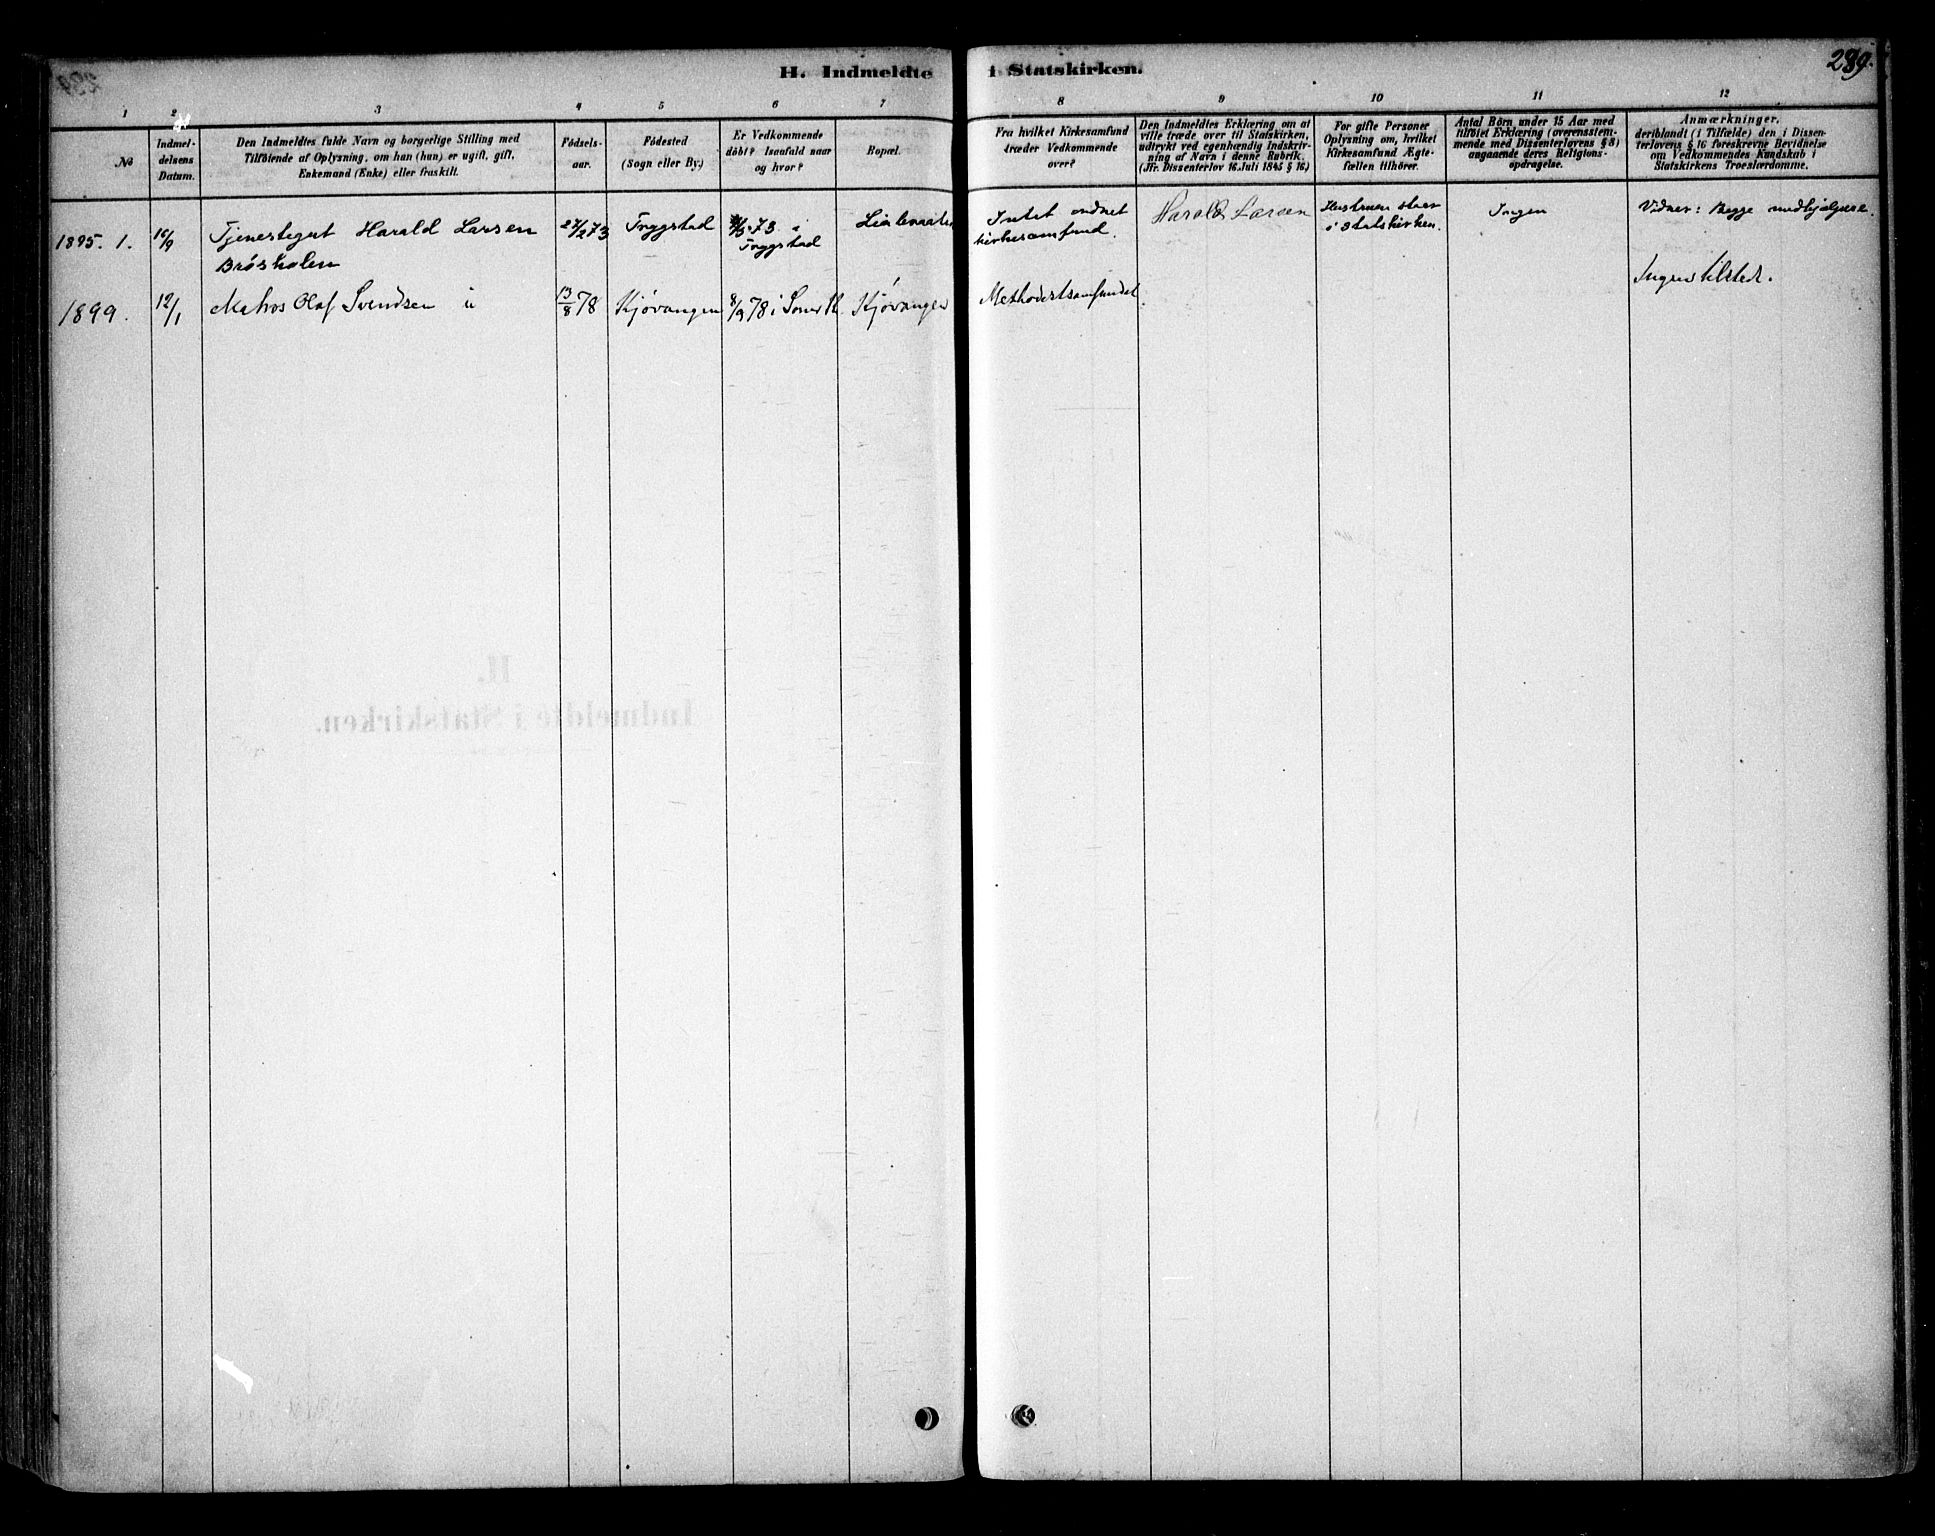 H. Indmeldte i Statskirken.
289.
1 2 3 4 5 6 7 8 9 10 11 12
№
Indmel-
delsens
Datum.
Den Indmeldtes fulde Navn og borgerlige Stilling med
Tilföiende af Oplysning, om han (hun) er ugift, gift,
Enkemand (Enke) eller fraskilt.
Födsels-
aar.
Födested
(Sogn eller By.)
Er Vedkommende
döbt? Isaafald naar
og hvor?
Bopæl.
Fra hvilket Kirkesamfund
træder Vedkommende
over?
Den Indmeldtes Erklæring om at
ville træde over til Statskirken,
udtrykt ved egenhændig Indskriv-
ning af Navn i denne Rubrik.
(Jfr. Dissenterlov 16 Juli 1845 § 16.)
For gifte Personer
Oplysning om, hvilket
Kirkesamfund Ægte-
fællen tilhörer.
Antal Börn under 15 Aar med
tilföiet Erklæring (overensstem-
mende med Dissenterlovens § 8)
angaaende deres Religions-
opdragelse.
Anmærkninger,
deriblandt (i Tilfælde) den i Dissen-
terlovens § 16 foreskrevne Bevidnelse
om Vedkommendes Kundskab i
Statskirkens Troeslærdomme.
1895. 1. 16/9 Tjenestegut Harald Larsen 27/273 Tryggstad 73 i Intet ordnet Harald Larsen Hustruen staar Ingen Vidner: Begge medhjælpere.
Tryggstad kirkesamfund. i Statskirken.
Ingen tilsted.
1899. 12/1 Matros Olaf Svendsen u 13/8 78 Kjøvangen 8/9 78 i Kjøvangen Methodistsamfundet.
II.
Indmeldte i Statskirken.